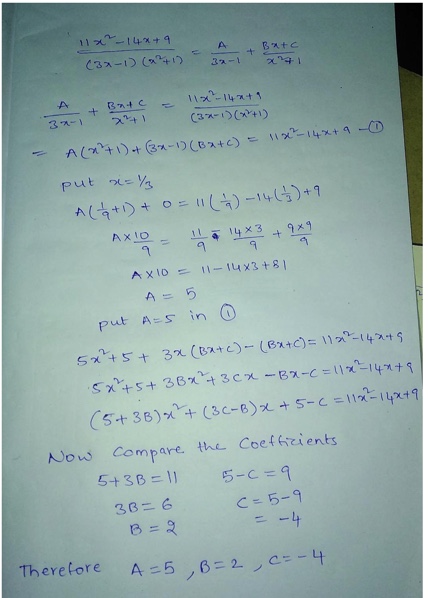 (11x²-14x+9)/((3x-1)(x²+1)) = A/(3x-1) + (Bx+C)/(x²+1)
A/(3x-1) + (Bx+C)/(x²+1) = (11x²-14x+9)/((3x-1)(x²+1))
= A(x²+1)+(3x-1)(Bx+C) = 11x²-14x+9 -①
put x=1/3
A(1/9+1) + 0 = 11(1/9)-14(1/3)+9
A×10/9 = 11/9 - 14×3/9 + 9×9/9
A×10 = 11-14×3+81
A = 5
put A=5 in ①
5x²+5+ 3x(Bx+C)-(Bx+C)=11x²-14x+9
5x²+5+3Bx²+3Cx-Bx-C=11x²-14x+9
(5+3B)x²+(3C-B)x+5-C=11x²-14x+9
Now Compare the Coefficients
5+3B=11 5-C=9
3B=6 C=5-9
B=2 = -4
Therefore A=5, B=2, C=-4